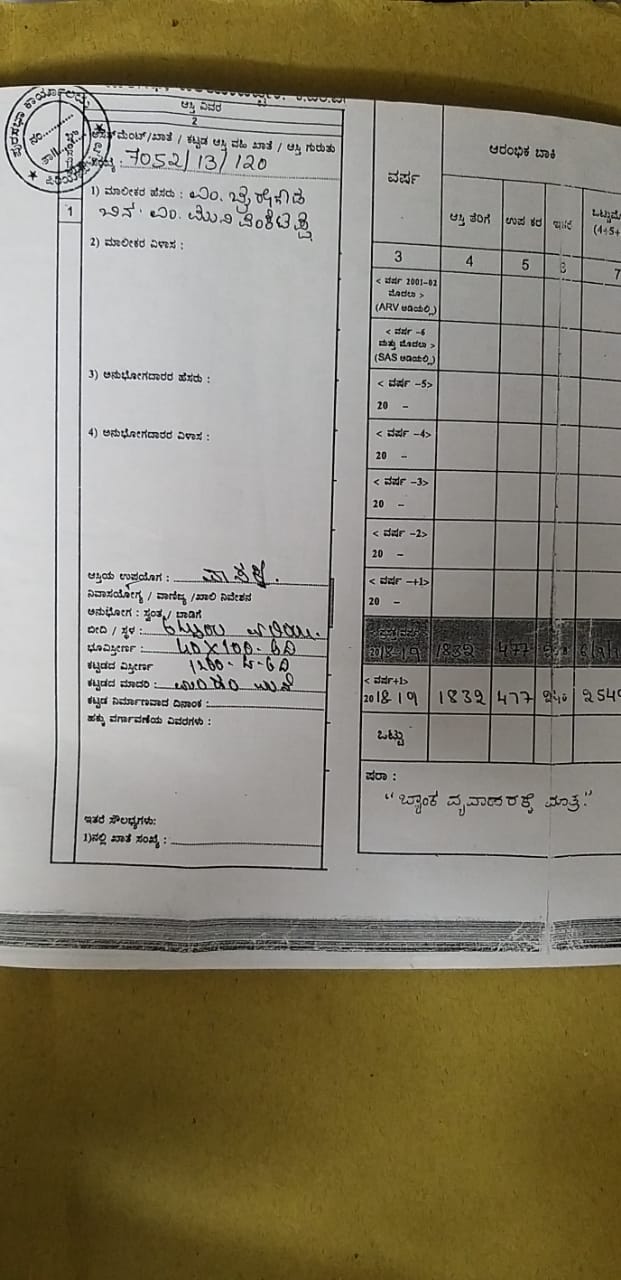 ಪುರಸಭಾ ಕಾರ್ಯಾಲಯ
ನಂ.
ಆಸ್ತಿ ವಿವರ
2
ಅಸೆಸ್‌ಮೆಂಟ್/ಖಾತೆ / ಕಟ್ಟಡ ಆಸ್ತಿ ವಹಿ ಖಾತೆ / ಆಸ್ತಿ ಗುರುತು
7052/13/120
1
1) ಮಾಲೀಕರ ಹೆಸರು : ಎಂ.
ಬಿನ್ ಎಂ. ಮುನಿವೆಂಕಟಪ್ಪ
2) ಮಾಲೀಕರ ವಿಳಾಸ :
3) ಅನುಭೋಗದಾರರ ಹೆಸರು :
4) ಅನುಭೋಗದಾರರ ವಿಳಾಸ :
ಆಸ್ತಿಯ ಉಪಯೋಗ :
ನಿವಾಸಯೋಗ್ಯ / ವಾಣಿಜ್ಯ /ಖಾಲಿ ನಿವೇಶನ
ಅನುಭೋಗ : ಸ್ವಂತ / ಬಾಡಿಗೆ
ಬೀದಿ / ಸ್ಥಳ :
ಭೂವಿಸ್ತೀರ್ಣ : 40x100-ಅಡಿ
ಕಟ್ಟಡದ ವಿಸ್ತೀರ್ಣ 1200-ಚ-ಅಡಿ
ಕಟ್ಟಡದ ಮಾದರಿ :
ಕಟ್ಟಡ ನಿರ್ಮಾಣವಾದ ದಿನಾಂಕ :
ಹಕ್ಕು ವರ್ಗಾವಣೆಯ ವಿವರಗಳು :
ಇತರೆ ಸೌಲಭ್ಯಗಳು:
1)ನಲ್ಲಿ ಖಾತೆ ಸಂಖ್ಯೆ :
ವರ್ಷ
ಆರಂಭಿಕ ಬಾಕಿ
ಆಸ್ತಿ ತೆರಿಗೆ ಉಪ ಕರ ಇತರೆ
(4+5+
3 4 5 6 7
< ವರ್ಷ 2001-02
ಮೊದಲು >
(ARV ಅಡಿಯಲ್ಲಿ)
< ವರ್ಷ -6
ಮತ್ತು ಮೊದಲು >
(SAS ಅಡಿಯಲ್ಲಿ)
< ವರ್ಷ -5>
20 –
< ವರ್ಷ -4>
20 –
< ವರ್ಷ -3>
20 –
< ವರ್ಷ -2>
20 –
< ವರ್ಷ -+1>
20 –
2018-19 1832 477
< ವರ್ಷ+1>
2018 19 1832 477 240 2549
ಒಟ್ಟು
ಷರಾ :
"ಬ್ಯಾಂಕ ವ್ಯವಹಾರಕ್ಕೆ ಮಾತ್ರ"